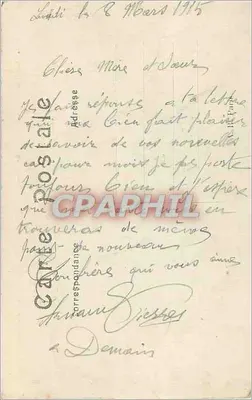 le 8 Mars 1915
Chère Mère et Sœur
Je fait réponse a ta lettre
qui ma bien fait plaisir
de savoir de vos nouvelles
car pour mois je me porte
toujours bien et j'espère
que en
trouveras de meme
point de nouveau
frère qui vous aime
Pierre
a Demain
Carte Postale
Adresse
Correspondance
CPAPHIL